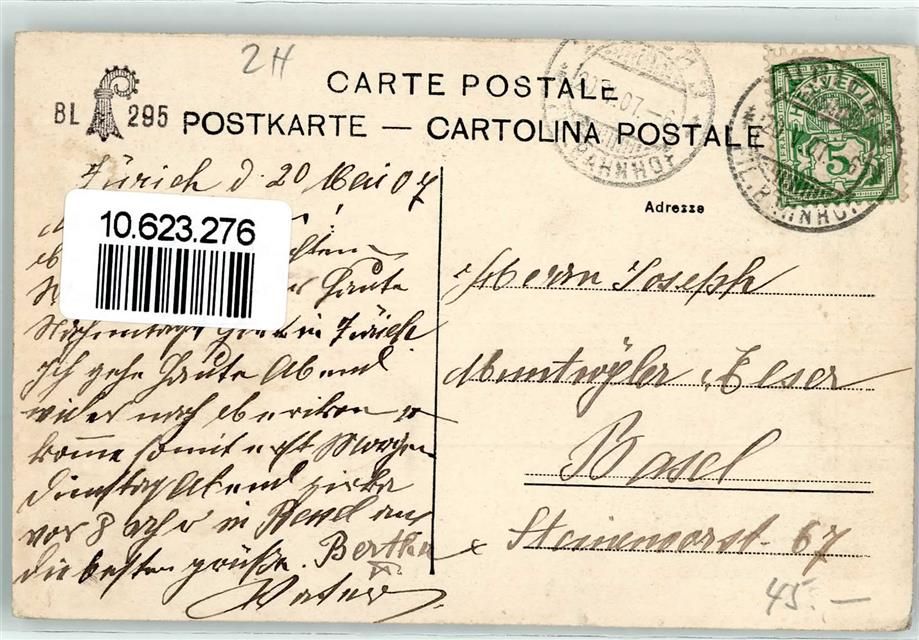 2H
CARTE POSTALE
BL 295
POSTKARTE — CARTOLINA POSTALE
Zürich d. 20 Mai 07
10.623.276
heute
Nachmittag in Zürich
Ich gehe heute Abend
wieder nach Oerikon u
komme somit erst Morgen
Dienstag Abend zirka
vor 8 Uhr in Basel an
die besten grüße. Bertha
Vater
Adresse
Herrn Joseph
Muntwyler Eser
Basel
Steinenvorst. 67
45.—
HELVETIA
5
BAHNHOF